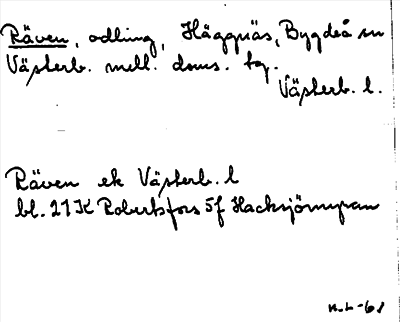 Räven, odling, Häggnäs, Bygdeå sn
Västerb. mell. doms. tg.
Västerb. l.
Räven ek Västerb. l
bl. 21K Robertsfors 5f Hacksjömyran